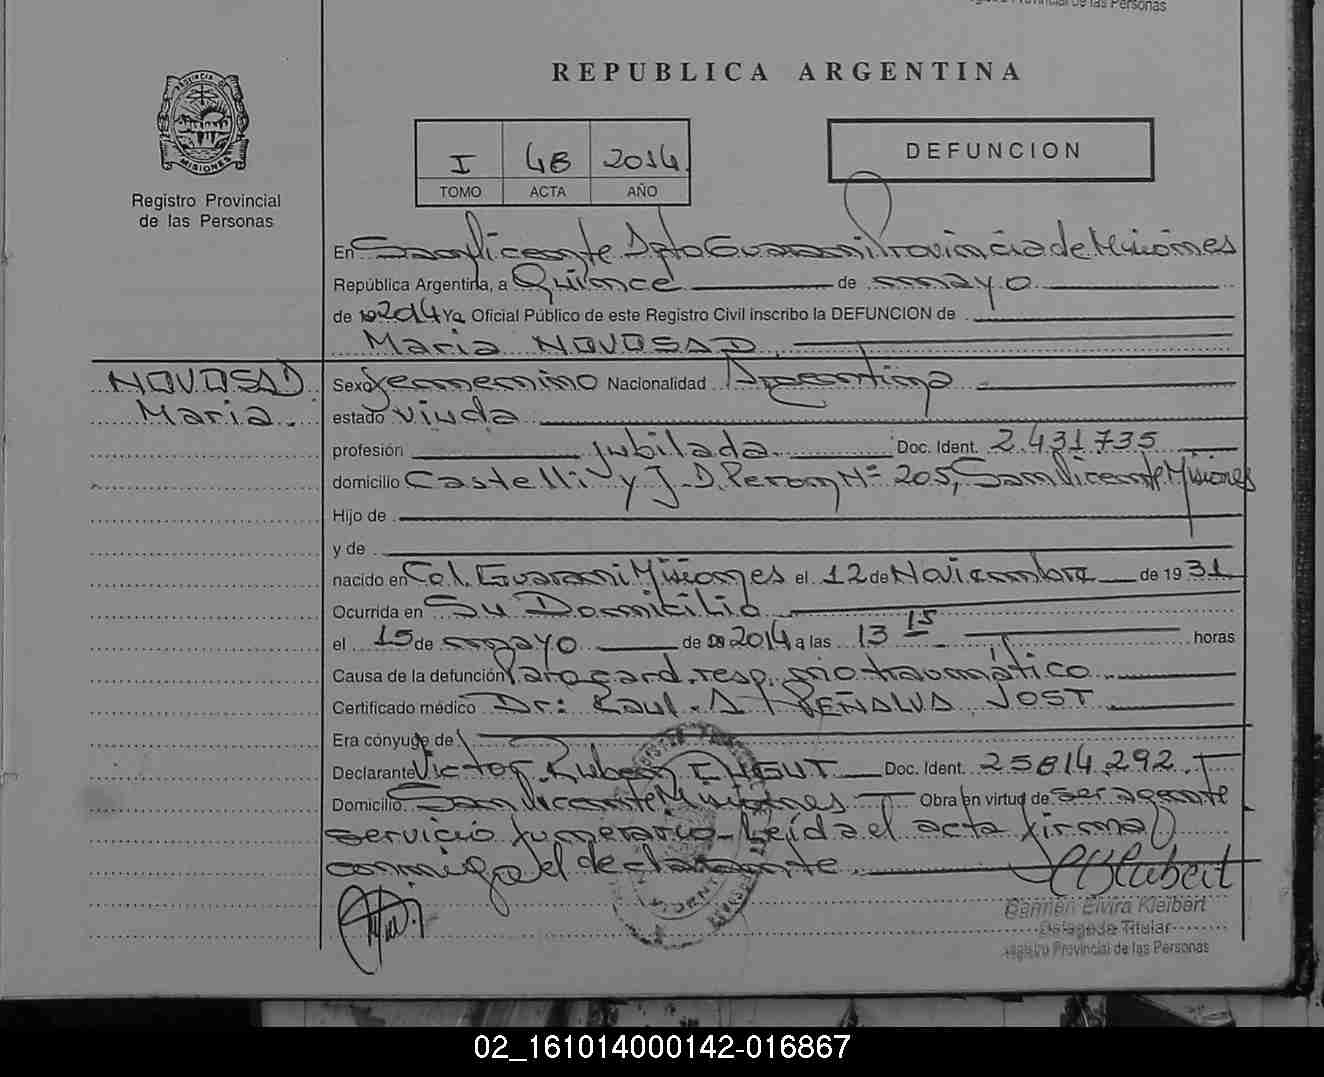 Registro Provincial de las Personas
REPUBLICA ARGENTINA
I 48 2014
TOMO ACTA AÑO
DEFUNCION
PROVINCIA DE MISIONES
Registro Provincial
de las Personas
En San Vicente Dpto Guarani Provincia de Misiones
República Argentina, a Quince de mayo
de 2014 Yo Oficial Público de este Registro Civil inscribo la DEFUNCION de
Maria NOVOSAD
NOVOSAD
Maria
Sexo femenino Nacionalidad Argentina
estado viuda
profesión jubilada Doc. Ident. 2.431.735
domicilio Castelli y J.D. Peron Nº 205, San Vicente Misiones
Hijo de
y de
nacido en Col. Guarani Misiones el 12 de Noviembre de 1931
Ocurrida en Su Domicilio
el 15 de mayo de 2014 a las 13 15 horas
Causa de la defunción Paro card. resp. no traumático
Certificado médico Dr: Raul A PEÑALVA JOST
Era cónyuge de
Declarante Victor Ruben Doc. Ident. 25814.292
Domicilio San Vicente Misiones Obra en virtud de ser agente
servicio funerario - Leída el acta firma
conmigo el declarante.
Carmen Elvira Kleibert
Delegada Titular
Registro Provincial de las Personas
02_161014000142-016867